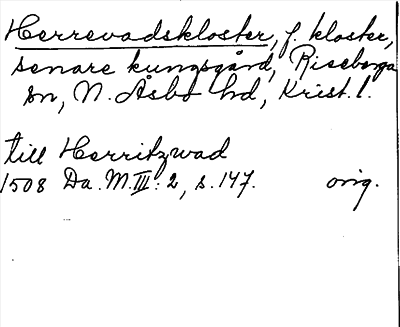 Herrevadskloster, f. kloster,
senare kungsgård, Riseberga
sn, N. Åsbo hd, Krist. l.
till Herritzwad
1508 Da. M. III: 2, s. 147. orig.